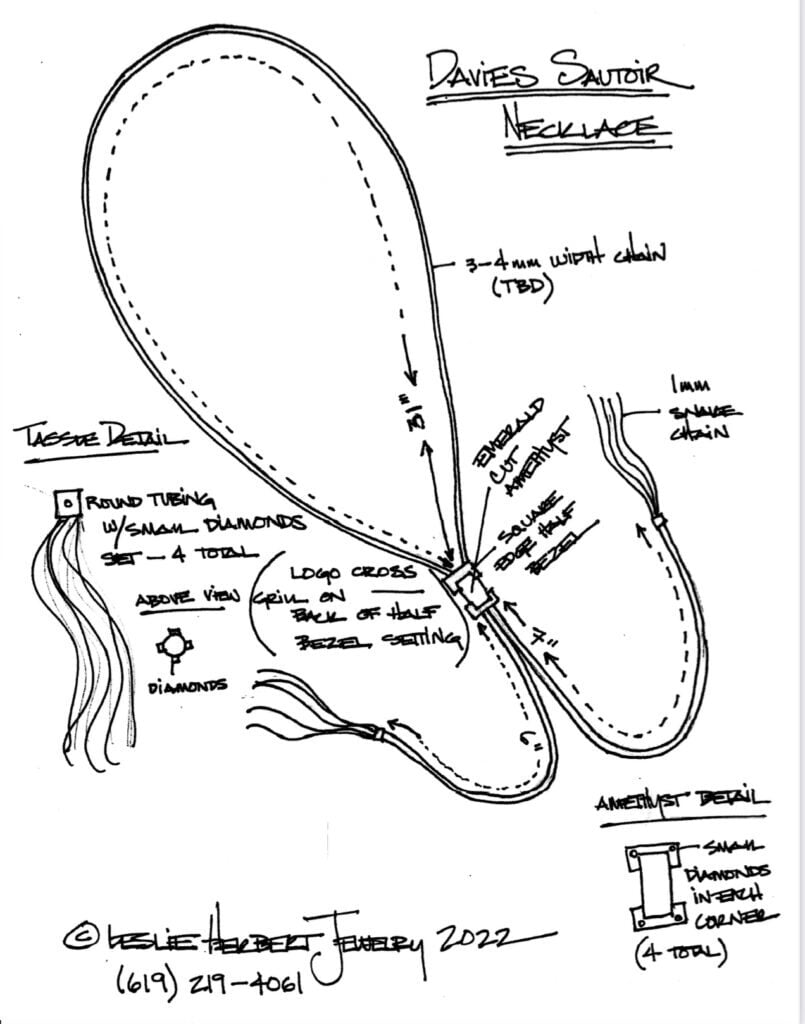 DAVIES SAUTOIR
NECKLACE
3-4mm WIDTH CHAIN
(TBD)
31"
EMERALD
CUT
AMETHYST
1mm
SNAKE
CHAIN
TASSLE DETAIL
ROUND TUBING
W/SMALL DIAMONDS
SET - 4 TOTAL
ABOVE VIEW
DIAMONDS
SQUARE
EDGE HALF
BEZEL
(LOGO CROSS
GRILL ON
BACK OF HALF
BEZEL SETTING)
7"
6"
AMETHYST DETAIL
SMALL
DIAMONDS
IN EACH
CORNER
(4 TOTAL)
© LESLIE HERBERT JEWELRY 2022
(619) 219-4061